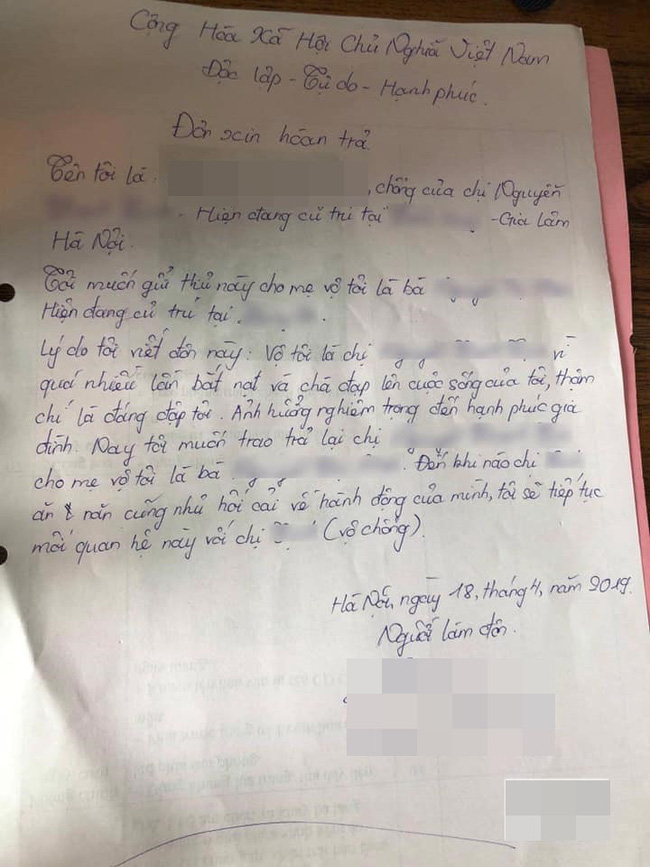 Cộng Hòa Xã Hội Chủ Nghĩa Việt Nam
Độc lập - Tự do - Hạnh phúc.
Đơn xin hoàn trả
Tên tôi là , chồng của chị Nguyễn
Hiện đang cư trí tại - Gia Lâm
Hà Nội.
Tôi muốn gửi thư này cho mẹ vợ tôi là bà
Hiện đang cư trú tại
Lý do tôi viết đơn này: Vợ tôi là chị vì
quá nhiều lần bắt nạt và chà đạp lên cuộc sống của tôi, thậm
chí là đáng đập tôi. Ảnh hưởng nghiêm trọng đến hạnh phúc gia
đình. Nay tôi muốn trao trả lại chị
cho mẹ vợ tôi là bà . Đến khi nào chị
ăn năn cũng như hối cải về hành động của mình, tôi sẽ tiếp tục
mối quan hệ này với chị (vợ chồng).
Hà Nội, ngày 18, tháng 4, năm 2019.
Người làm đơn.